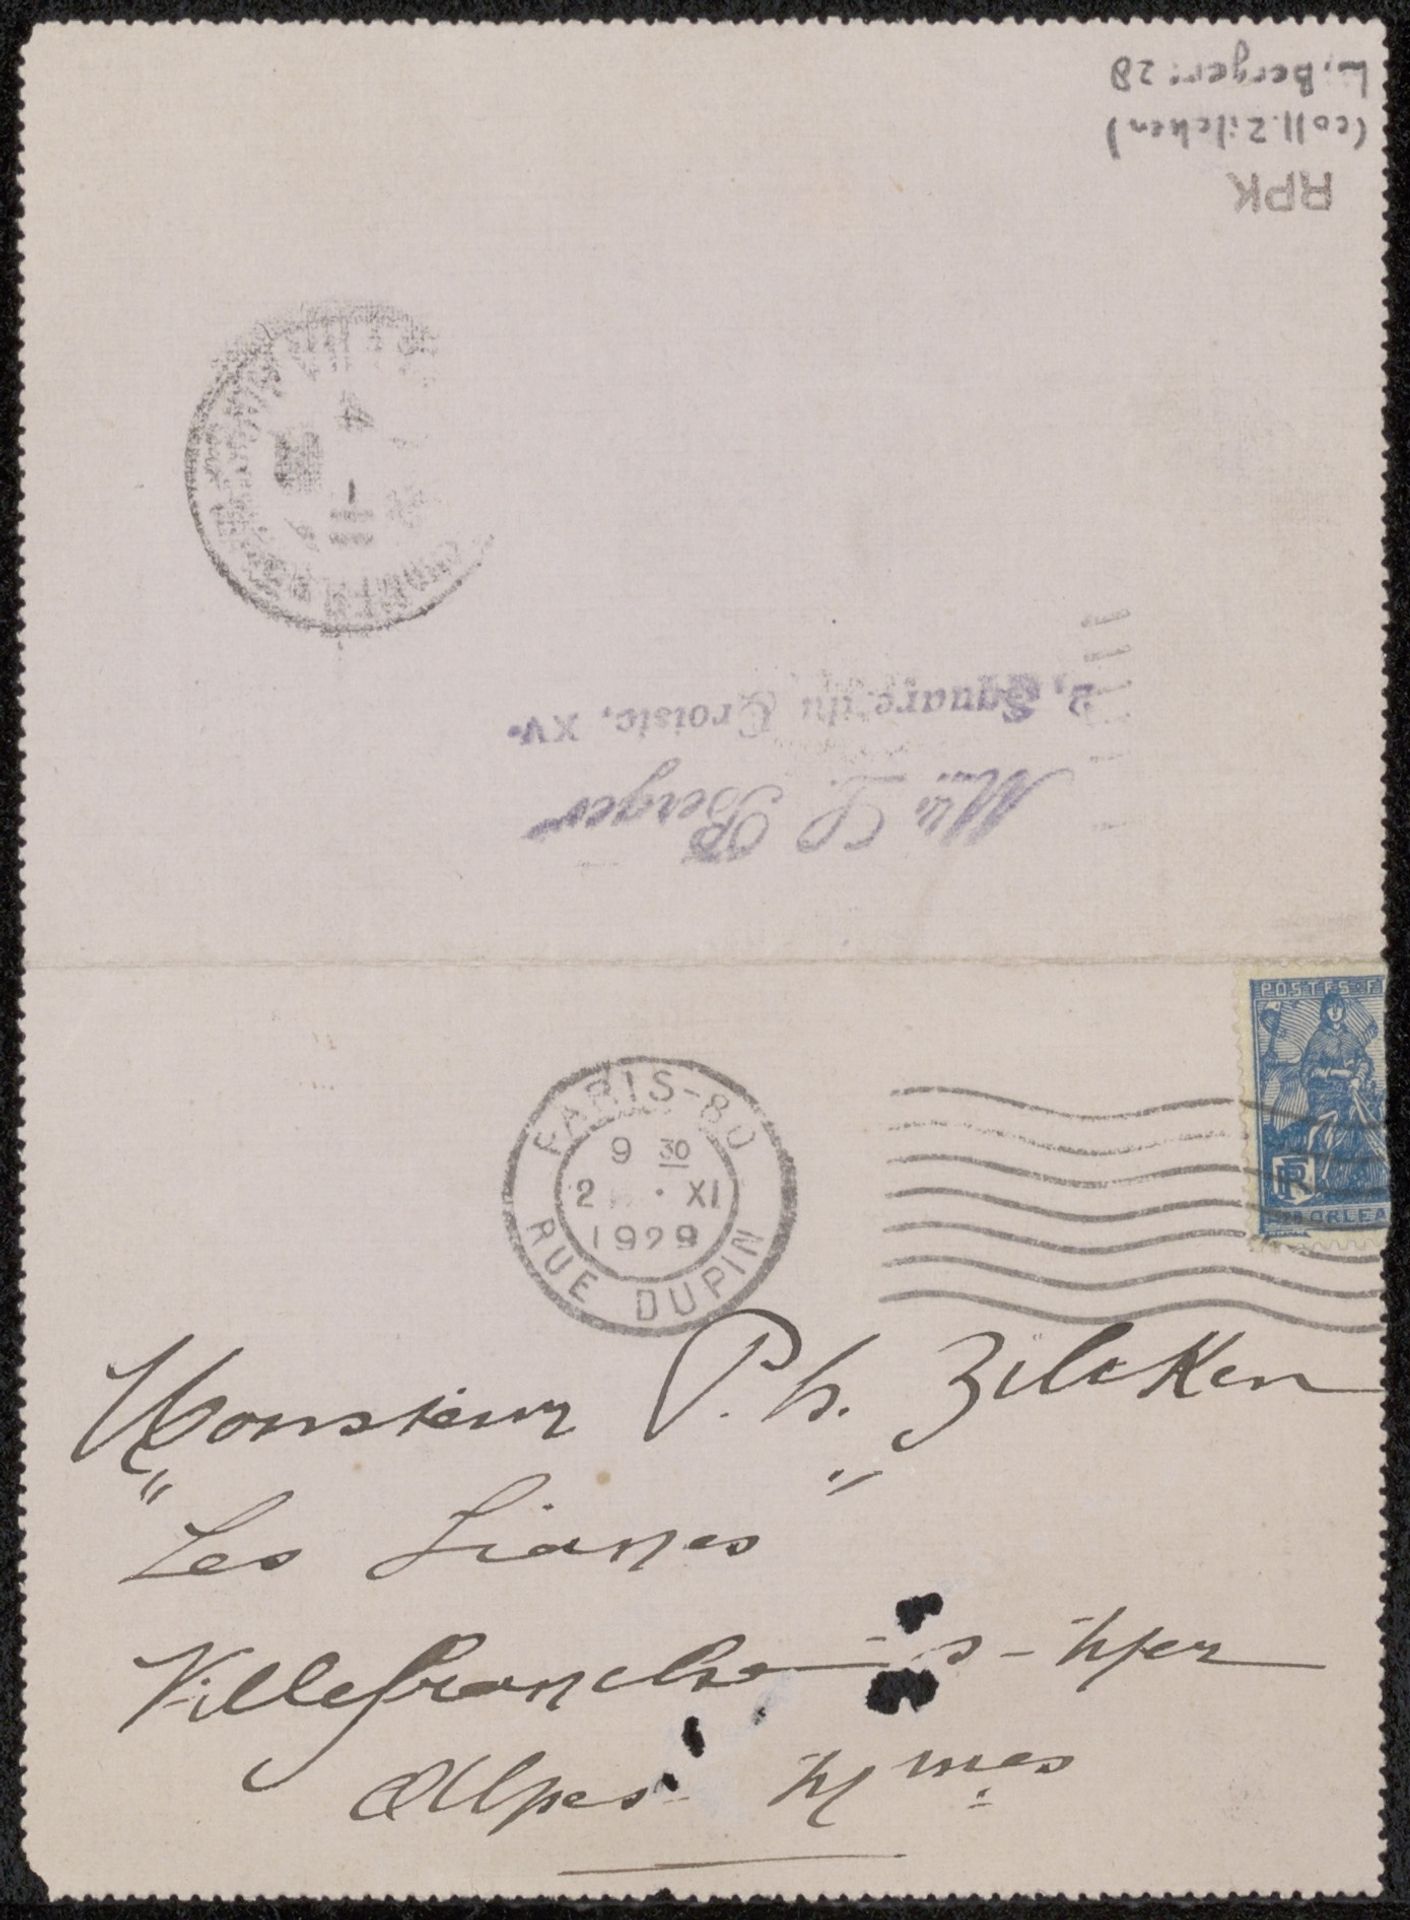 L. Berger: 28
(coll. Zilcken)
RPK
2, Square du Croisic, XV.
Mlle L. Berger
POSTES F
RF
ORLEA
PARIS-80
9 30
2 XI
1929
RUE DUPIN
Monsieur P.h. Zilcken
"Les Lianes"
Villefranche-s-Mer
Alpes Mmes